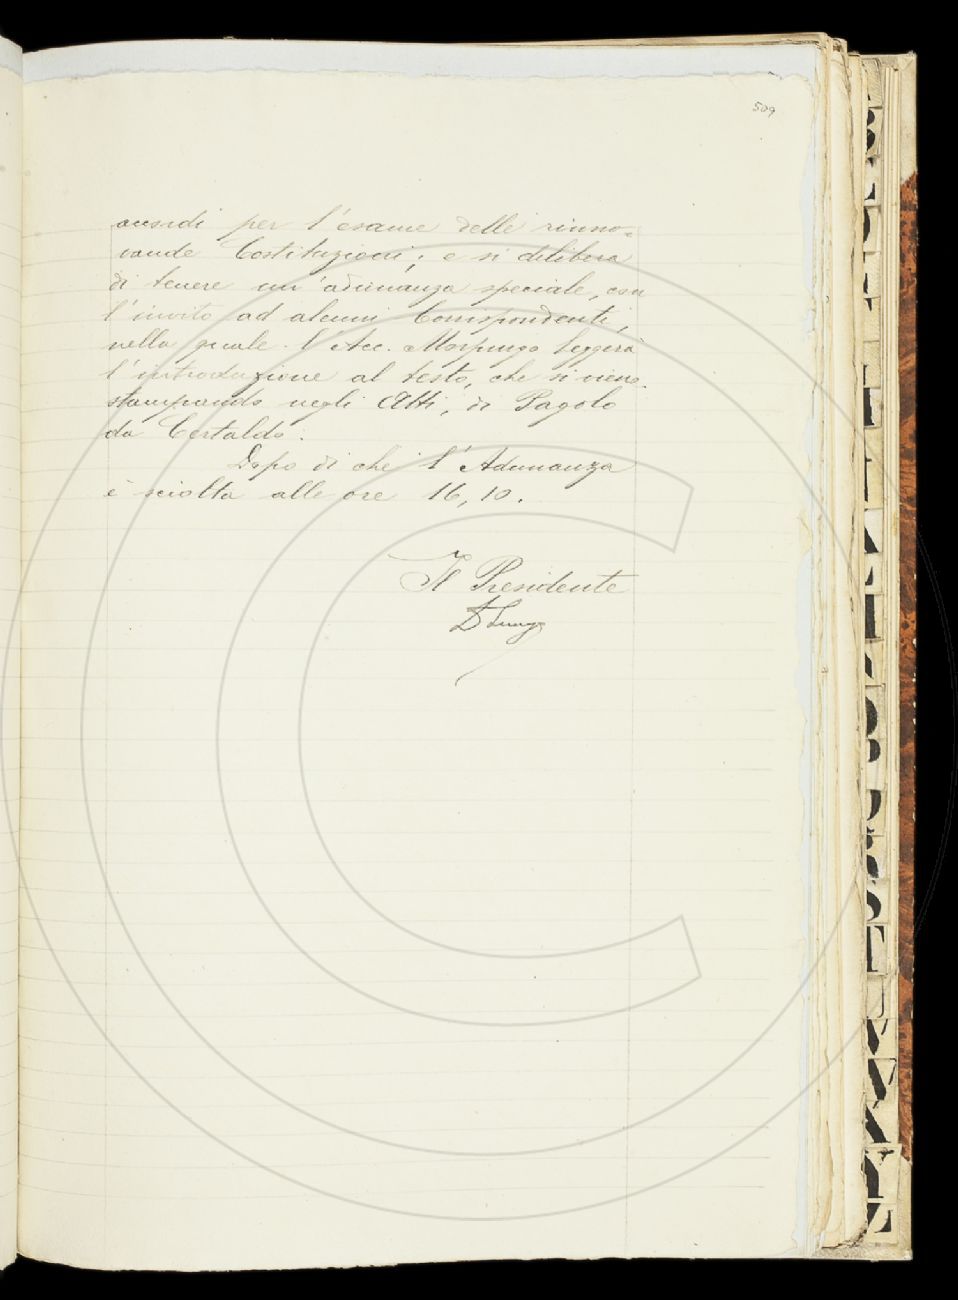 509
per l'esame delle rinno=
vande Costituzioni; e si delibera
di tenere un'adunanza speciale, con
l'invito ad alcuni Corrispondenti,
nella quale l'Acc. Morpurgo leggerà
l'introduzione al testo, che si viene
stampando negli Atti, di Pagolo
da Certaldo.
Dopo di che l'Adunanza
è sciolta alle ore 16,10.
Il Presidente